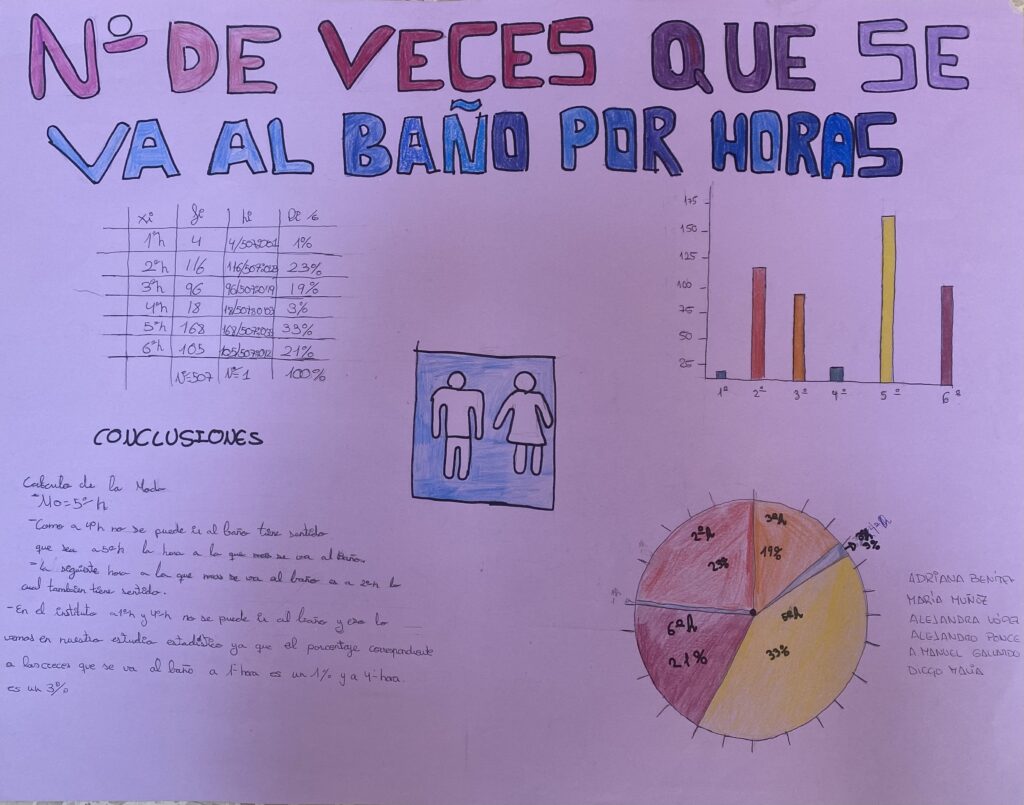 Nº DE VECES QUE SE
VA AL BAÑO POR HORAS
xi fi hi %
1ªh 4 4/507 1%
2ªh 116 116/507 23%
3ªh 96 96/507 19%
4ªh 18 18/507 3%
5ªh 168 168/507 33%
6ªh 105 105/507 21%
N=507 N=1 100%
175
150
125
100
75
50
25
1ª 2ª 3ª 4ª 5ª 6ª
CONCLUSIONES
Calculo de la Moda
Mo=5ªh
-Como a 4ªh no se puede ir al baño tiene sentido
que sea a 5ªh la hora a la que mas se va al baño.
-La siguiente hora a la que mas se va al baño es a 2ªh lo
cual tambien tiene sentido.
-En el instituto a 1ªh y 4ªh no se puede ir al baño y eso lo
vemos en nuestro estudio estadistico ya que el porcentaje correspondiente
a las veces que se va al baño a 1ª hora es un 1% y a 4ª hora
es un 3%
2ªh
23%
3ªh
19%
4ªh
3%
5ªh
33%
6ªh
21%
ADRIANA
MARÍA MUÑOZ
ALEJANDRA LÓPEZ
ALEJANDRO PONCE
A. MANUEL GALLARDO
DIEGO